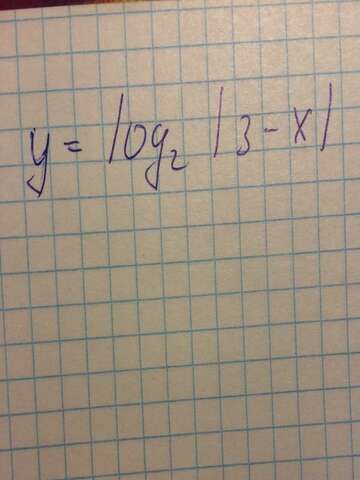 y = log₂ |3 - x|